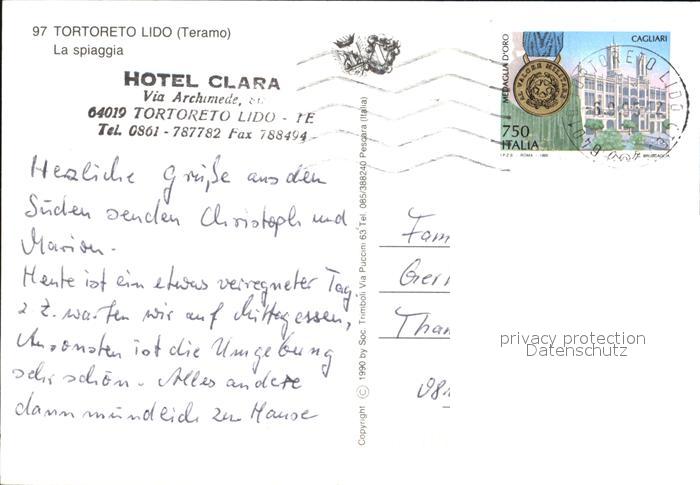 97 TORTORETO LIDO (Teramo)
La spiaggia
HOTEL CLARA
Via Archimede,
64019 TORTORETO LIDO - TE
Tel. 0861 - 787782 Fax 788494
Herzliche Grüße aus den
Süden senden Christoph und
Marion.
Heute ist ein etwas verregneter Tag,
z Z. warten wir auf Mittagessen,
Ansonsten ist die Umgebung
sehr schön. Alles andere
dann mündlich zu Hause
Copyright © 1990 by Soc. Trimboli Via Puccini 63 Tel. 085/388240 Pescara (Italia)
MEDAGLIA D'ORO
AL VALOR MILITARE
CAGLIARI
750
ITALIA
I.P.Z.S. - ROMA - 1990
TORTORETO LIDO
64019
Fam
Gerr
Than
privacy protection
Datenschutz